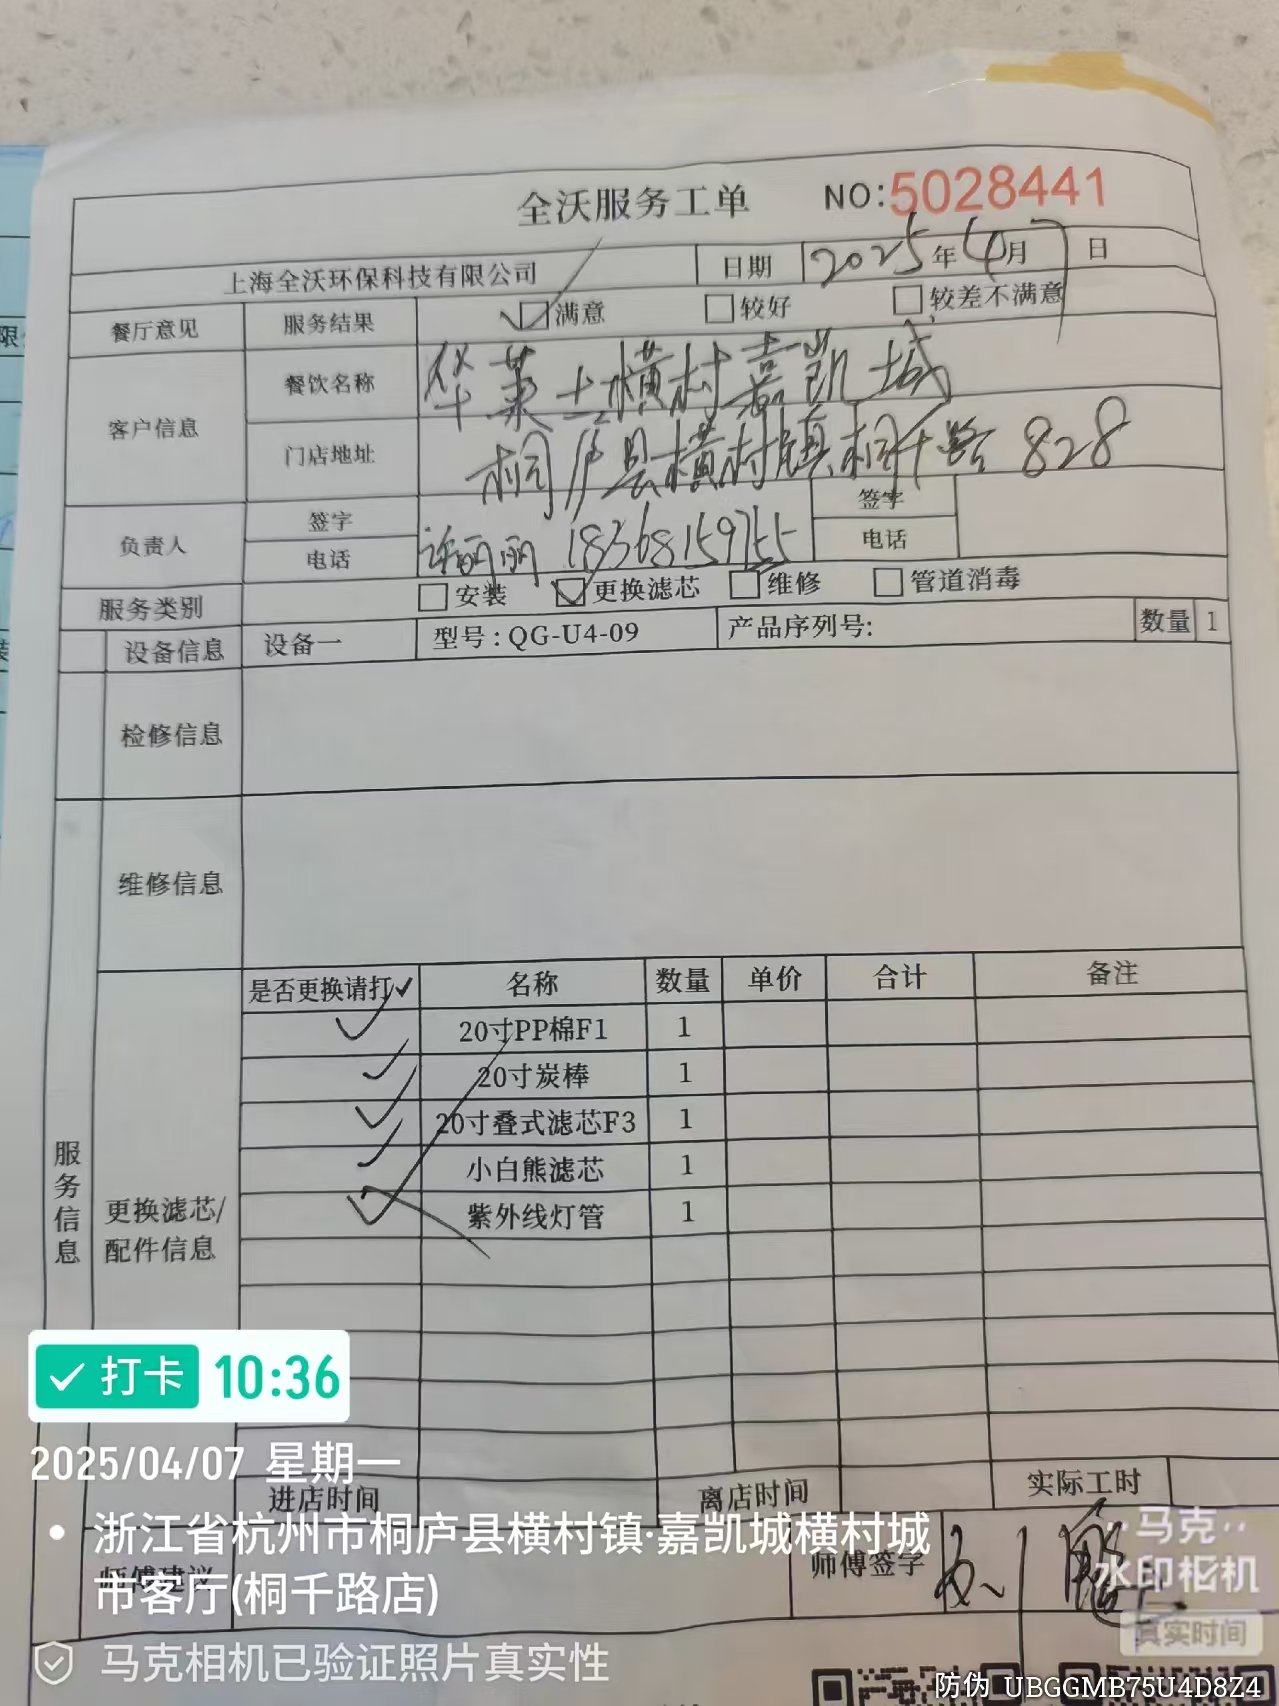 全沃服务工单 NO:5028441
上海全沃环保科技有限公司 日期 2025年4月7日
餐厅意见 服务结果 ☑满意 □较好 □较差不满意
客户信息 餐饮名称 华莱士横村嘉凯城
门店地址 桐庐县横村镇桐千路828
负责人 签字 许丽丽 18368159755 签字
电话 电话
服务类别 □安装 ☑更换滤芯 □维修 □管道消毒
设备信息 设备一 型号:QG-U4-09 产品序列号: 数量 1
检修信息
维修信息
服务信息
更换滤芯/配件信息
是否更换请打✓ 名称 数量 单价 合计 备注
✓ 20寸PP棉F1 1
✓ 20寸炭棒 1
✓ 20寸叠式滤芯F3 1
✓ 小白熊滤芯 1
✓ 紫外线灯管 1
进店时间 离店时间 实际工时
师傅建议 师傅签字
✓打卡 10:36
2025/04/07 星期一
• 浙江省杭州市桐庐县横村镇·嘉凯城横村城
市客厅(桐千路店)
马克相机已验证照片真实性
马克
水印相机
真实时间
防伪 UBGGMB75U4D8Z4